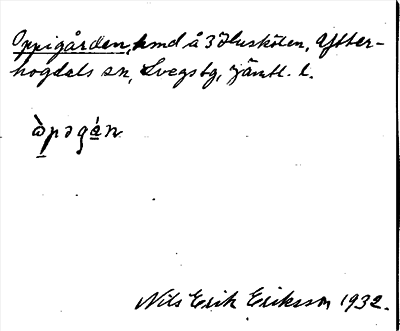 Oppigården, hmd å 3 Huskölen, Ytter-
hogdals sn, Svegs tg, Jämtl. l.
ò̱pəgá̱n
Nils Erik Eriksson 1932.